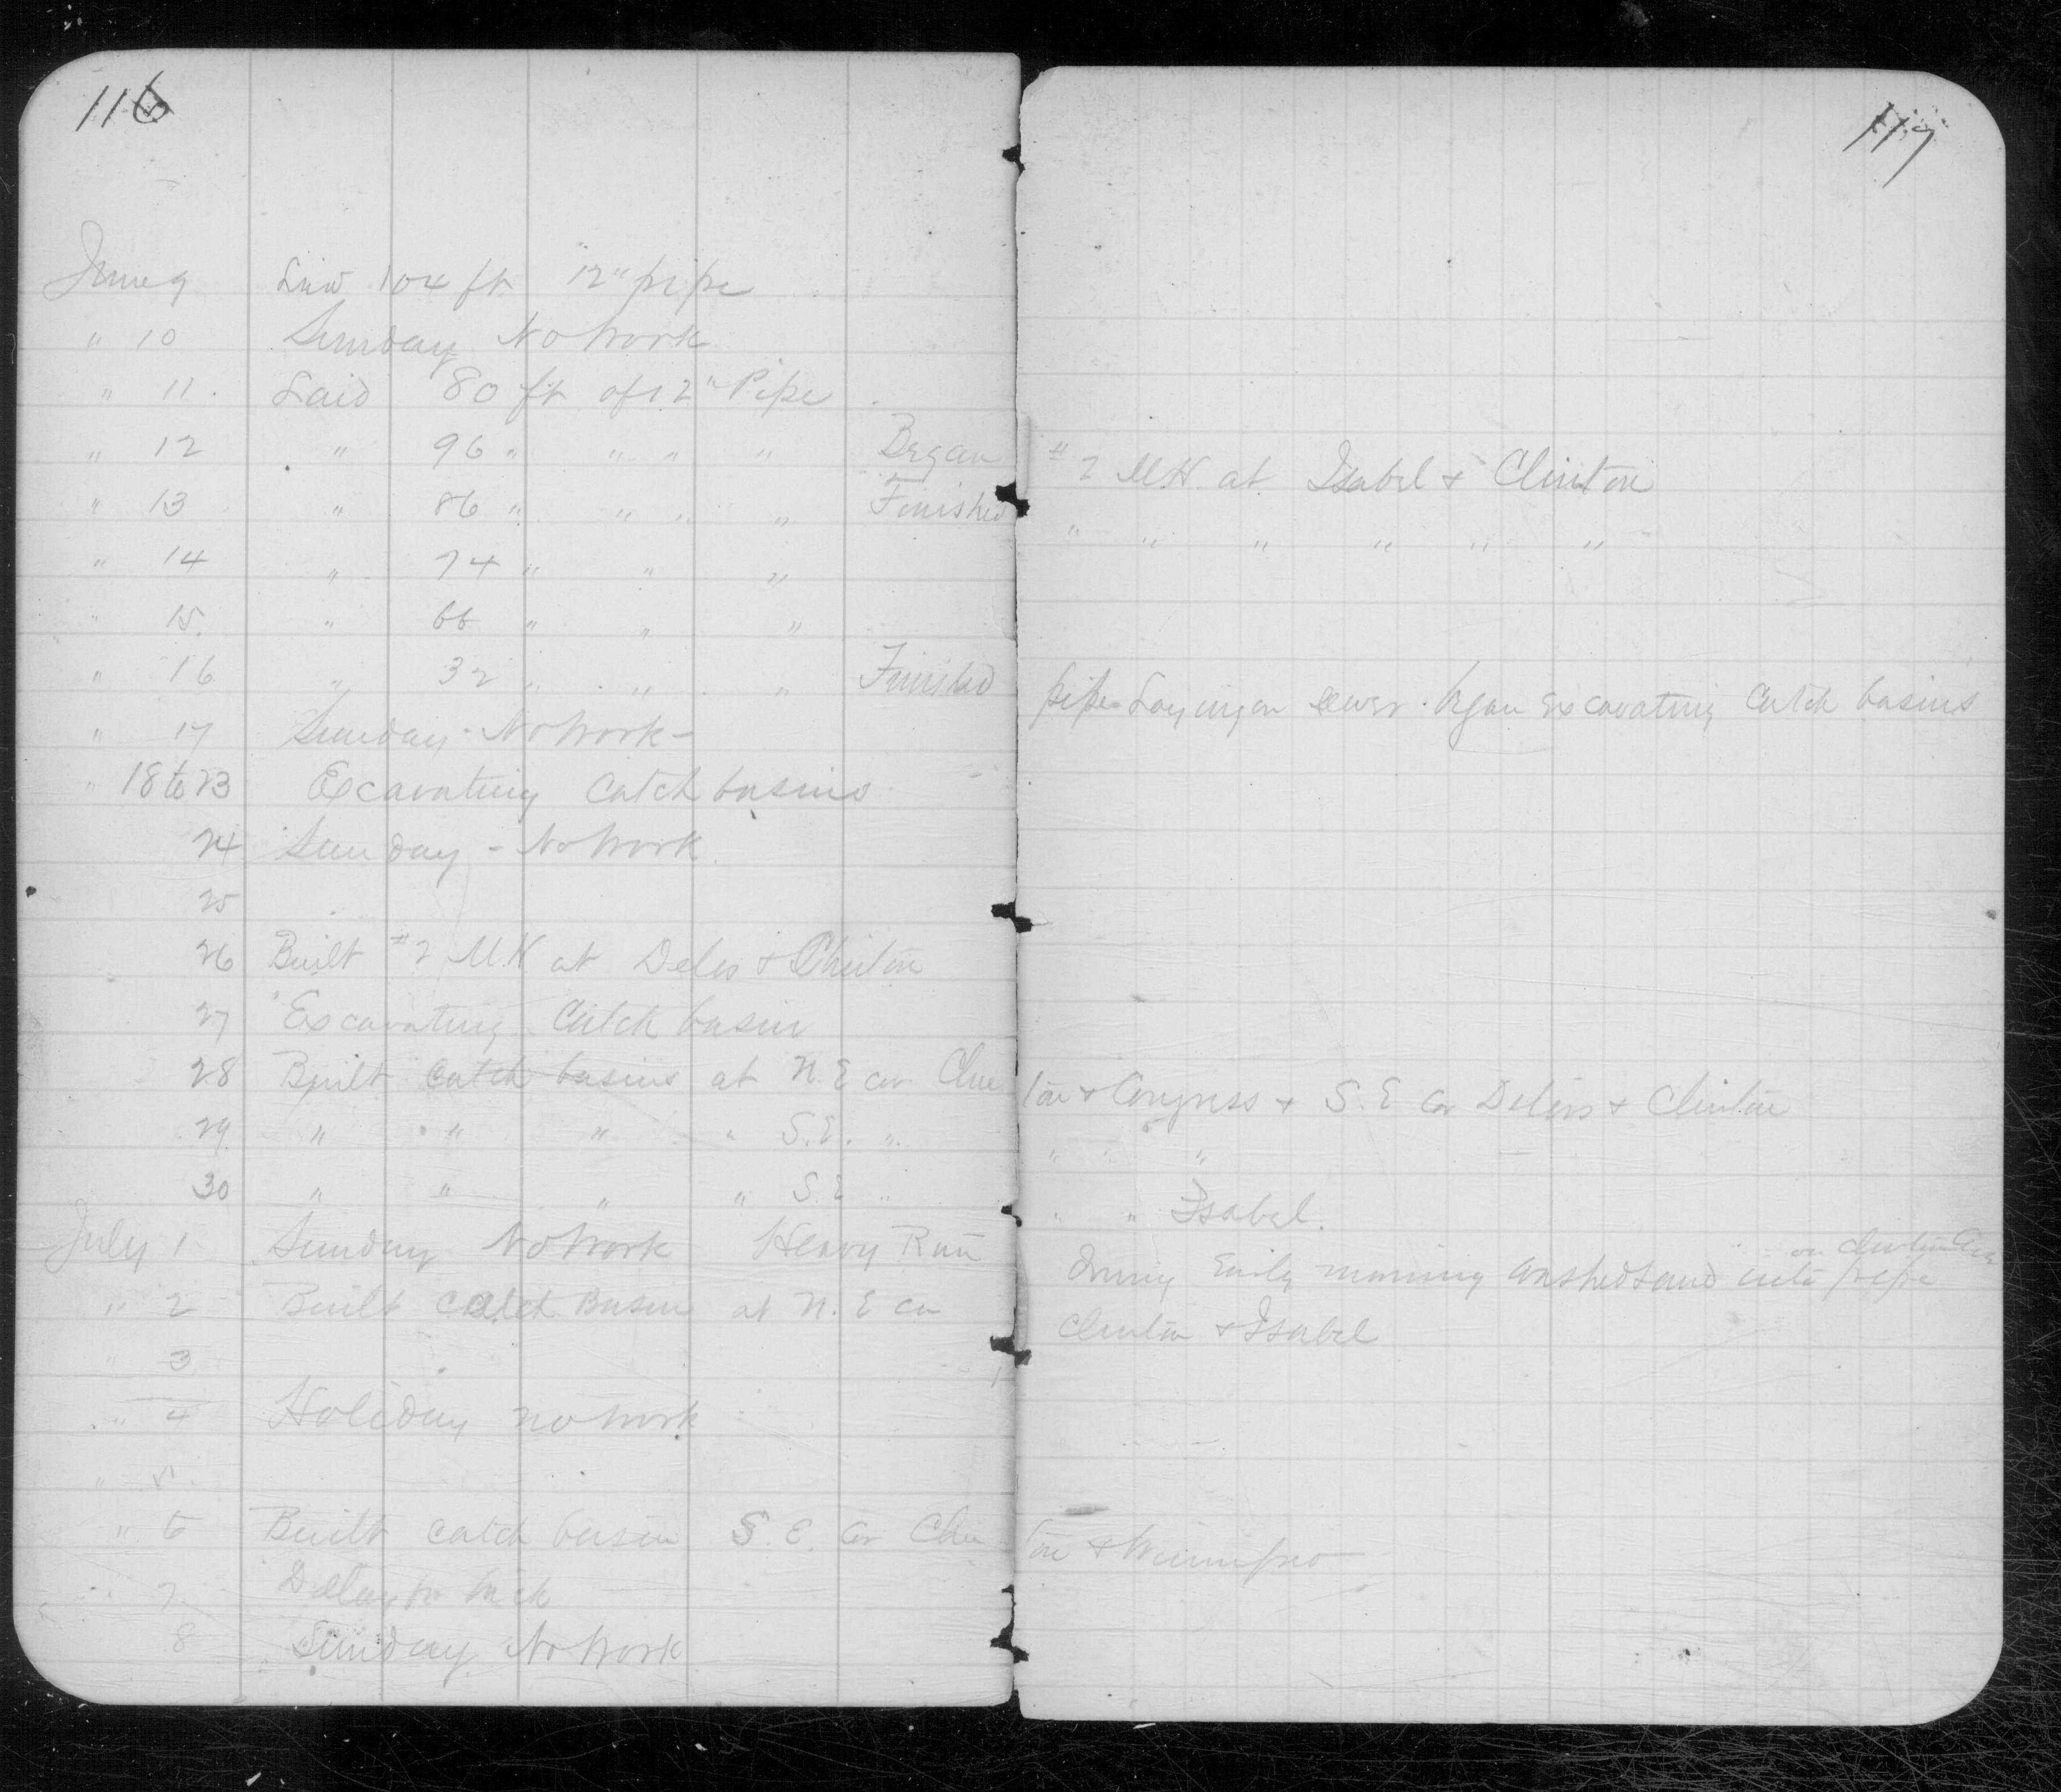 116
June 9 Laid 104 ft 12" pipe
" 10 Sunday No Work
" 11. Laid 80 ft of 12" Pipe
" 12 " 96 " " " " Began
" 13 " 86 " " " " Finished
" 14 " 74 " " "
" 15. " 66 " " "
" 16 " 32 " " " Finished
" 17 Sunday - No Work -
" 18 to 23 Excavating Catch basins
24 Sunday - No Work
25
26 Built #2 M.H at Delos & Clinton
27 Excavating Catch basin
28 Built catch basins at N.E cor Clin
29 " " " " S.E. "
30 " " " " S.E "
July 1 Sunday No Work Heavy Rain
" 2 Built Catch Basin at N.E cor
" 3
" 4 Holiday no work
" 5
" 6 Built catch basin S.E. Cor Clin
" 7
8 Sunday No Work
117
#2 M.H. at Isabel & Clinton
" " " " " "
pipe Laying on sewer. began Excavating Catch basins
ton & Congress & S.E Cor Delos & Clinton
" " "
" " Isabel.
on Clinton Ave
Early morning washed sand into pipe
Clinton & Isabel
ton & Winnifred